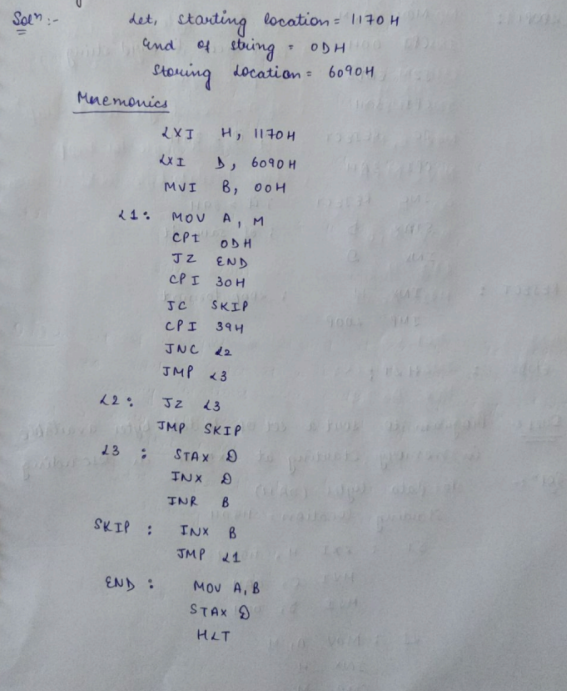 Solⁿ :- Let, starting location = 1170H
End of string = 0DH
Storing Location = 6090H
Mnemonics
LXI H, 1170H
LXI D, 6090H
MVI B, 00H
L1: MOV A, M
CPI 0DH
JZ END
CPI 30H
JC SKIP
CPI 39H
JNC L2
JMP L3
L2: JZ L3
JMP SKIP
L3 : STAX D
INX D
INR B
SKIP : INX B
JMP L1
END : MOV A, B
STAX D
HLT